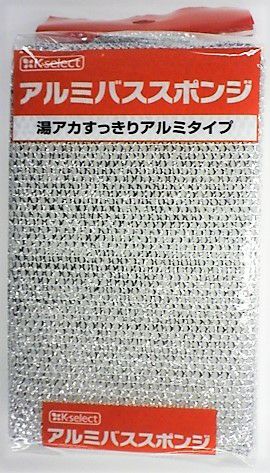 K-select
アルミバススポンジ
湯アカすっきりアルミタイプ
K-select
アルミバススポンジ